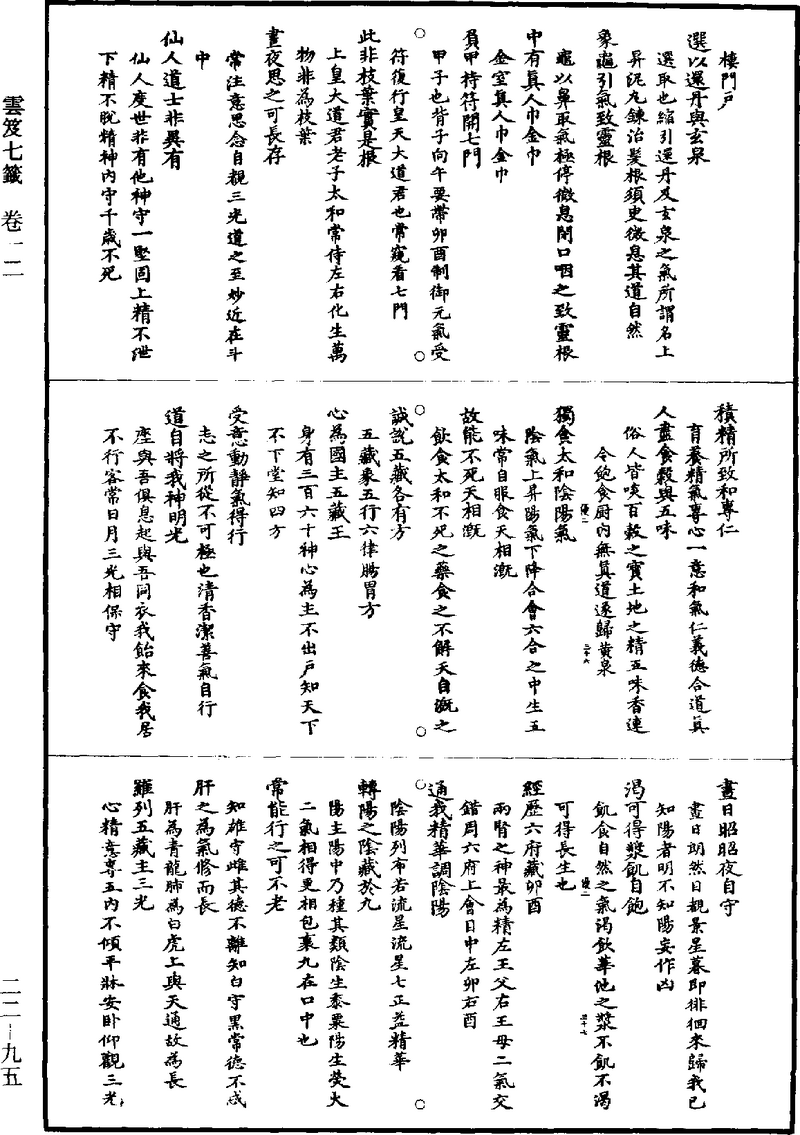 雲笈七籤 卷一二
二二—九五
樓門戶
選以還丹與玄泉
選取也縮引還丹及玄泉之氣所謂名上
昇泥丸鍊治髮根須臾微息其道自然
象龜引氣致靈根
龜以鼻取氣極停微息閉口咽之致靈根
中有真人巾金巾
金室真人巾金巾
負甲持符開七門
甲子也背子向午要帶卯酉制御元氣受
符復行皇天大道君也常窺看七門
此非枝葉實是根
上皇大道君老子太和常侍左右化生萬
物非為枝葉
晝夜思之可長存
常注意思念自親三光道之至妙近在斗
中
仙人道士非異有
仙人度世非有他神守一堅固上精不泄
下精不脫精神內守千歲不死
積精所致和專仁
育養精氣專心一意和氣仁義德合道真
人盡食穀與五味
俗人皆啖百穀之實土地之精五味香連
令飽食廚內無真道遂歸黃泉
獨食太和陰陽氣
陰氣上昇陽氣下降合會六合之中生五
味常自服食天相溉
故能不死天相溉
飲食太和不死之藥食之不解天自溉之
誠說五藏各有方
五藏象五行六律腸胃方
心為國主五藏王
身有三百六十神心為主不出戶知天下
不下堂知四方
受意動靜氣得行
志之所從不可極也清香潔善氣自行
道自將我神明光
座與吾俱息起與吾同衣我飴來食我居
不行客常日月三光相保守
晝日昭昭夜自守
晝日朗然日觀景星暮即徘徊來歸我己
知陽者明不知陽妄作凶
渴可得漿飢自飽
飢食自然之氣渴飲華池之漿不飢不渴
可得長生也
經歷六府藏卯酉
兩腎之神最為精左王父右王母二氣交
錯周六府上會日中左卯右酉
通我精華調陰陽
陰陽列布若流星流星七正益精華
轉陽之陰藏於九
陽主陽中乃種其類陰生黍粟陽生熒火
二氣相得更相包裹九在口中也
常能行之可不老
知雄守雌其德不離知白守黑常德不忒
肝之為氣修而長
肝為青龍肺為白虎上與天通故為長
羅列五藏主三光
心精意專五內不傾平牀安臥仰觀三光